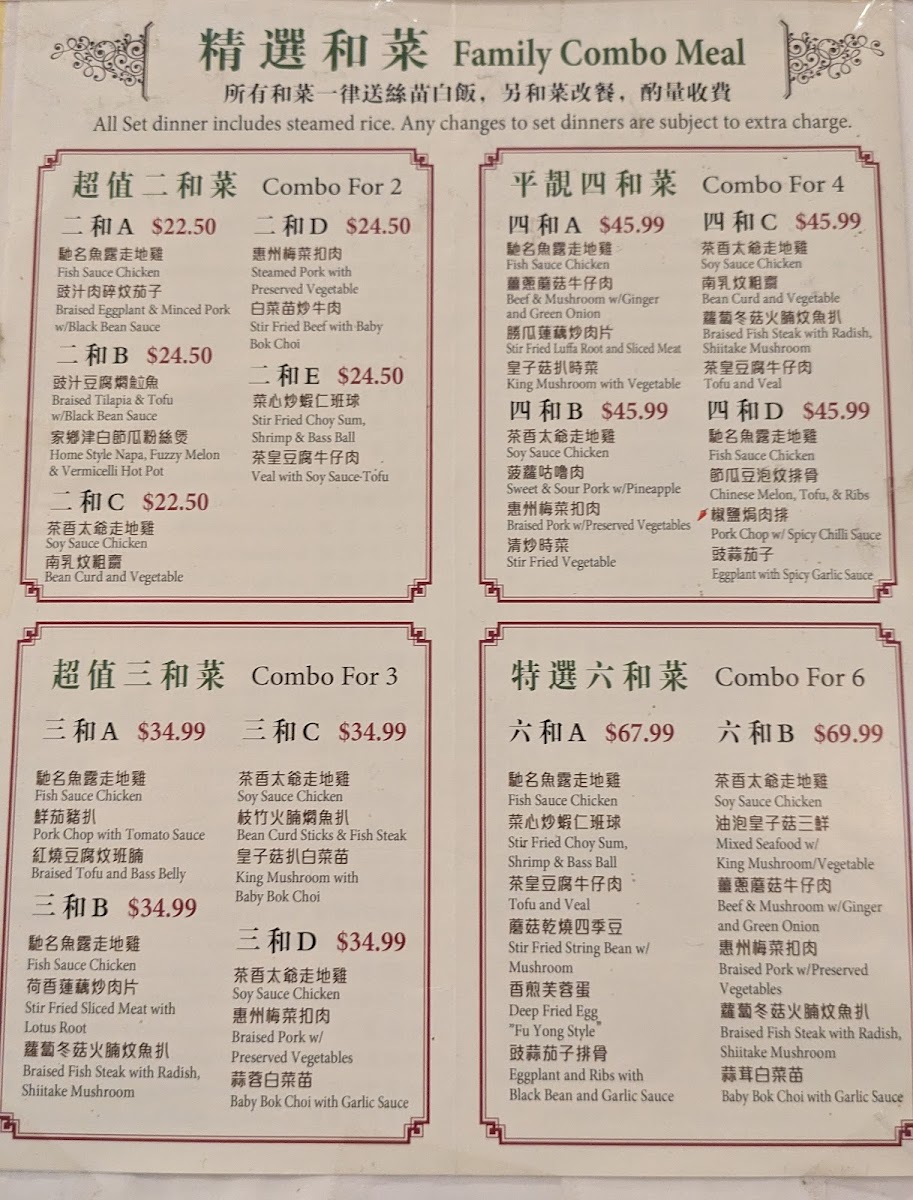 精選和菜 Family Combo Meal
所有和菜一律送絲苗白飯，另和菜改餐，酌量收費
All Set dinner includes steamed rice. Any changes to set dinners are subject to extra charge.
超值二和菜 Combo For 2
二和A $22.50
馳名魚露走地雞
Fish Sauce Chicken
豉汁肉碎炆茄子
Braised Eggplant & Minced Pork
w/Black Bean Sauce
二和B $24.50
豉汁豆腐燜䱽魚
Braised Tilapia & Tofu
w/Black Bean Sauce
家鄉津白節瓜粉絲煲
Home Style Napa, Fuzzy Melon
& Vermicelli Hot Pot
二和C $22.50
茶香太爺走地雞
Soy Sauce Chicken
南乳炆粗齋
Bean Curd and Vegetable
二和D $24.50
惠州梅菜扣肉
Steamed Pork with
Preserved Vegetable
白菜苗炒牛肉
Stir Fried Beef with Baby
Bok Choi
二和E $24.50
菜心炒蝦仁班球
Stir Fried Choy Sum,
Shrimp & Bass Ball
茶皇豆腐牛仔肉
Veal with Soy Sauce Tofu
平靚四和菜 Combo For 4
四和A $45.99
馳名魚露走地雞
Fish Sauce Chicken
薑蔥蘑菇牛仔肉
Beef & Mushroom w/Ginger
and Green Onion
勝瓜蓮藕炒肉片
Stir Fried Luffa Root and Sliced Meat
皇子菇扒時菜
King Mushroom with Vegetable
四和B $45.99
茶香太爺走地雞
Soy Sauce Chicken
菠蘿咕嚕肉
Sweet & Sour Pork w/Pineapple
惠州梅菜扣肉
Braised Pork w/Preserved Vegetables
清炒時菜
Stir Fried Vegetable
四和C $45.99
茶香太爺走地雞
Soy Sauce Chicken
南乳炆粗齋
Bean Curd and Vegetable
蘿蔔冬菇火腩炆魚扒
Braised Fish Steak with Radish,
Shiitake Mushroom
茶皇豆腐牛仔肉
Tofu and Veal
四和D $45.99
馳名魚露走地雞
Fish Sauce Chicken
節瓜豆泡炆排骨
Chinese Melon, Tofu, & Ribs
椒鹽焗肉排
Pork Chop w/ Spicy Chilli Sauce
豉蒜茄子
Eggplant with Spicy Garlic Sauce
超值三和菜 Combo For 3
三和A $34.99
馳名魚露走地雞
Fish Sauce Chicken
鮮茄豬扒
Pork Chop with Tomato Sauce
紅燒豆腐炆班腩
Braised Tofu and Bass Belly
三和B $34.99
馳名魚露走地雞
Fish Sauce Chicken
荷香蓮藕炒肉片
Stir Fried Sliced Meat with
Lotus Root
蘿蔔冬菇火腩炆魚扒
Braised Fish Steak with Radish,
Shiitake Mushroom
三和C $34.99
茶香太爺走地雞
Soy Sauce Chicken
枝竹火腩燜魚扒
Bean Curd Sticks & Fish Steak
皇子菇扒白菜苗
King Mushroom with
Baby Bok Choi
三和D $34.99
茶香太爺走地雞
Soy Sauce Chicken
惠州梅菜扣肉
Braised Pork w/
Preserved Vegetables
蒜蓉白菜苗
Baby Bok Choi with Garlic Sauce
特選六和菜 Combo For 6
六和A $67.99
馳名魚露走地雞
Fish Sauce Chicken
菜心炒蝦仁班球
Stir Fried Choy Sum,
Shrimp & Bass Ball
茶皇豆腐牛仔肉
Tofu and Veal
蘑菇乾燒四季豆
Stir Fried String Bean w/
Mushroom
香煎芙蓉蛋
Deep Fried Egg
"Fu Yong Style"
豉蒜茄子排骨
Eggplant and Ribs with
Black Bean and Garlic Sauce
六和B $69.99
茶香太爺走地雞
Soy Sauce Chicken
油泡皇子菇三鮮
Mixed Seafood w/
King Mushroom/Vegetable
薑蔥蘑菇牛仔肉
Beef & Mushroom w/Ginger
and Green Onion
惠州梅菜扣肉
Braised Pork w/Preserved
Vegetables
蘿蔔冬菇火腩炆魚扒
Braised Fish Steak with Radish,
Shiitake Mushroom
蒜茸白菜苗
Baby Bok Choi with Garlic Sauce